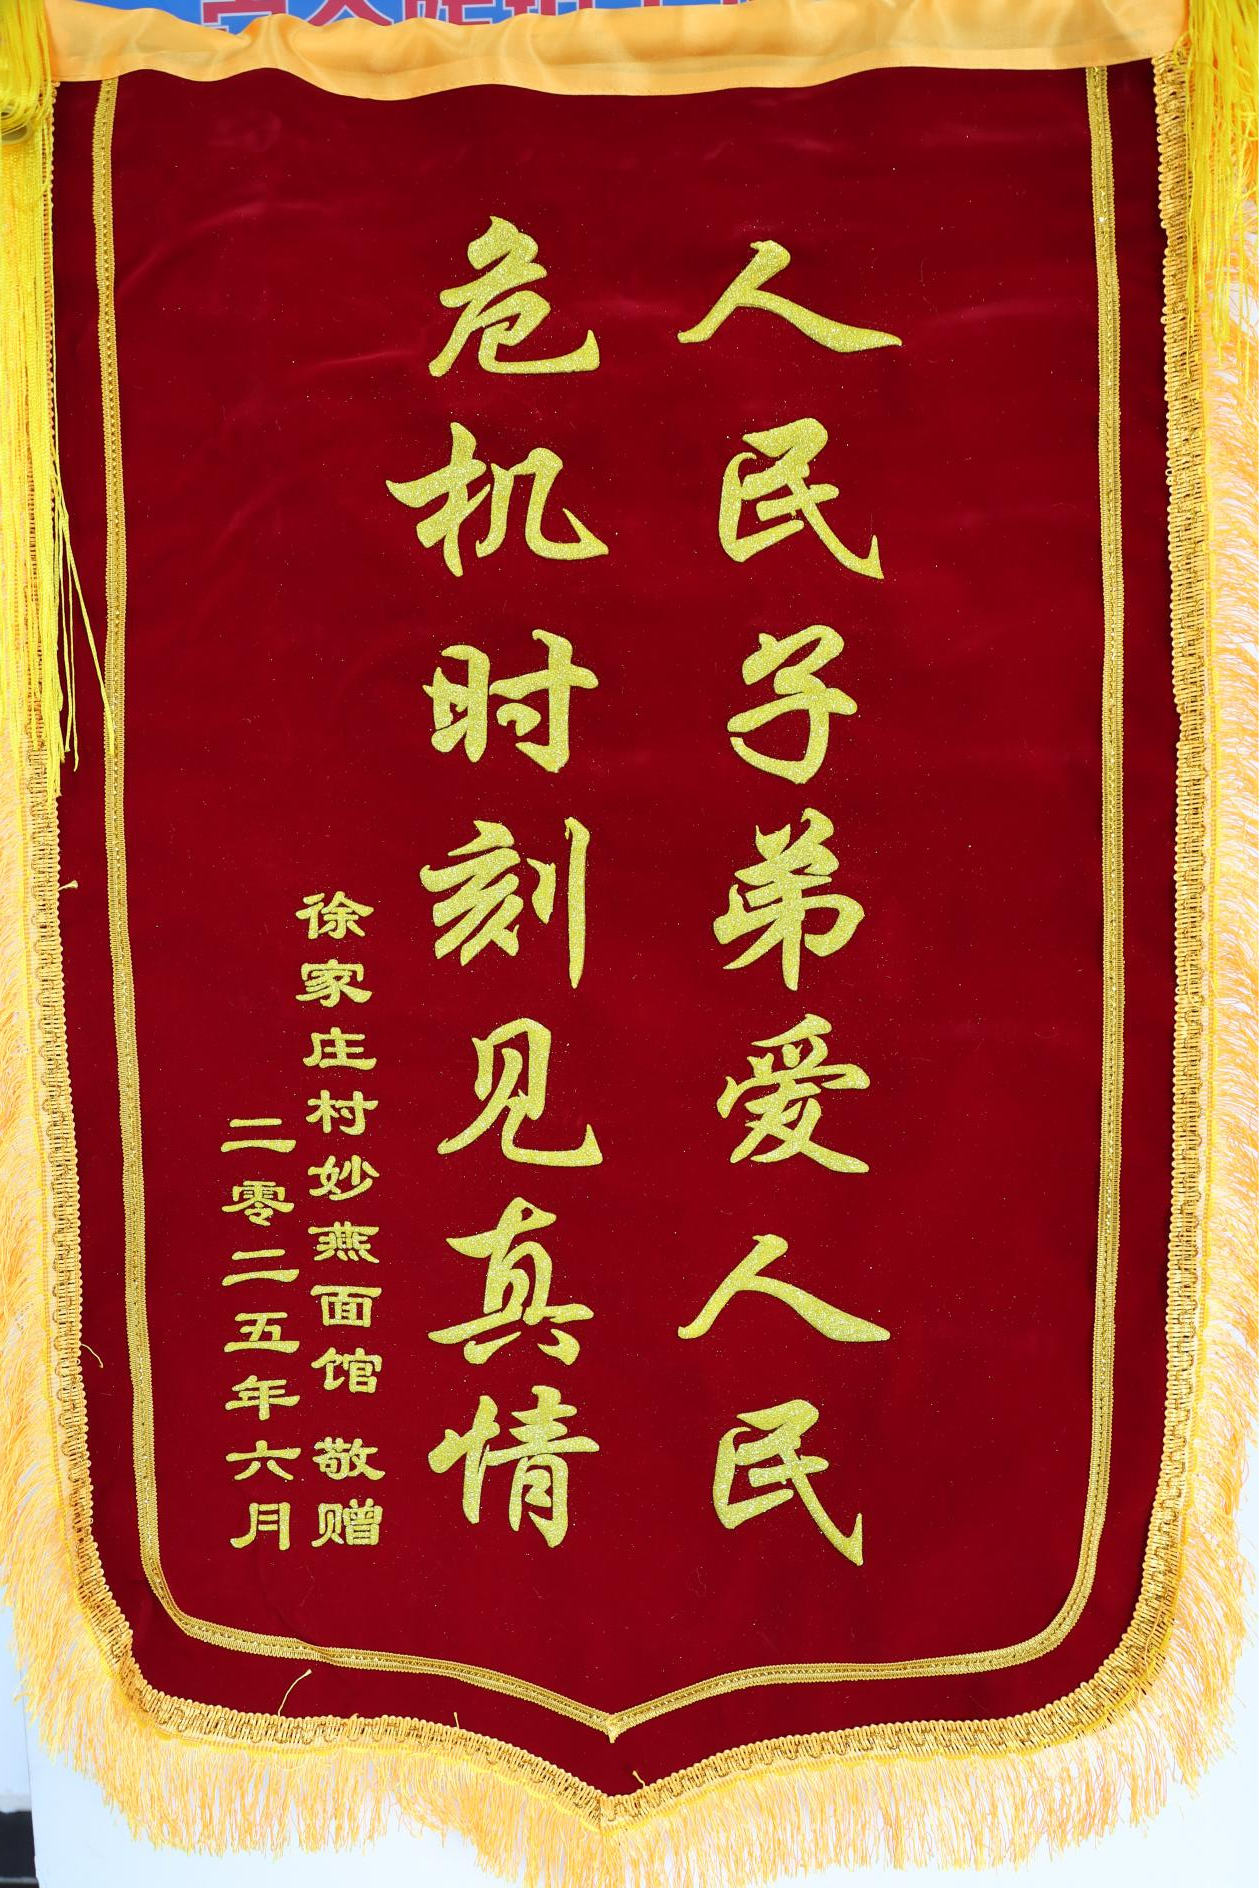 人民子弟爱人民
危机时刻见真情
徐家庄村妙燕面馆 敬赠
二零二五年六月